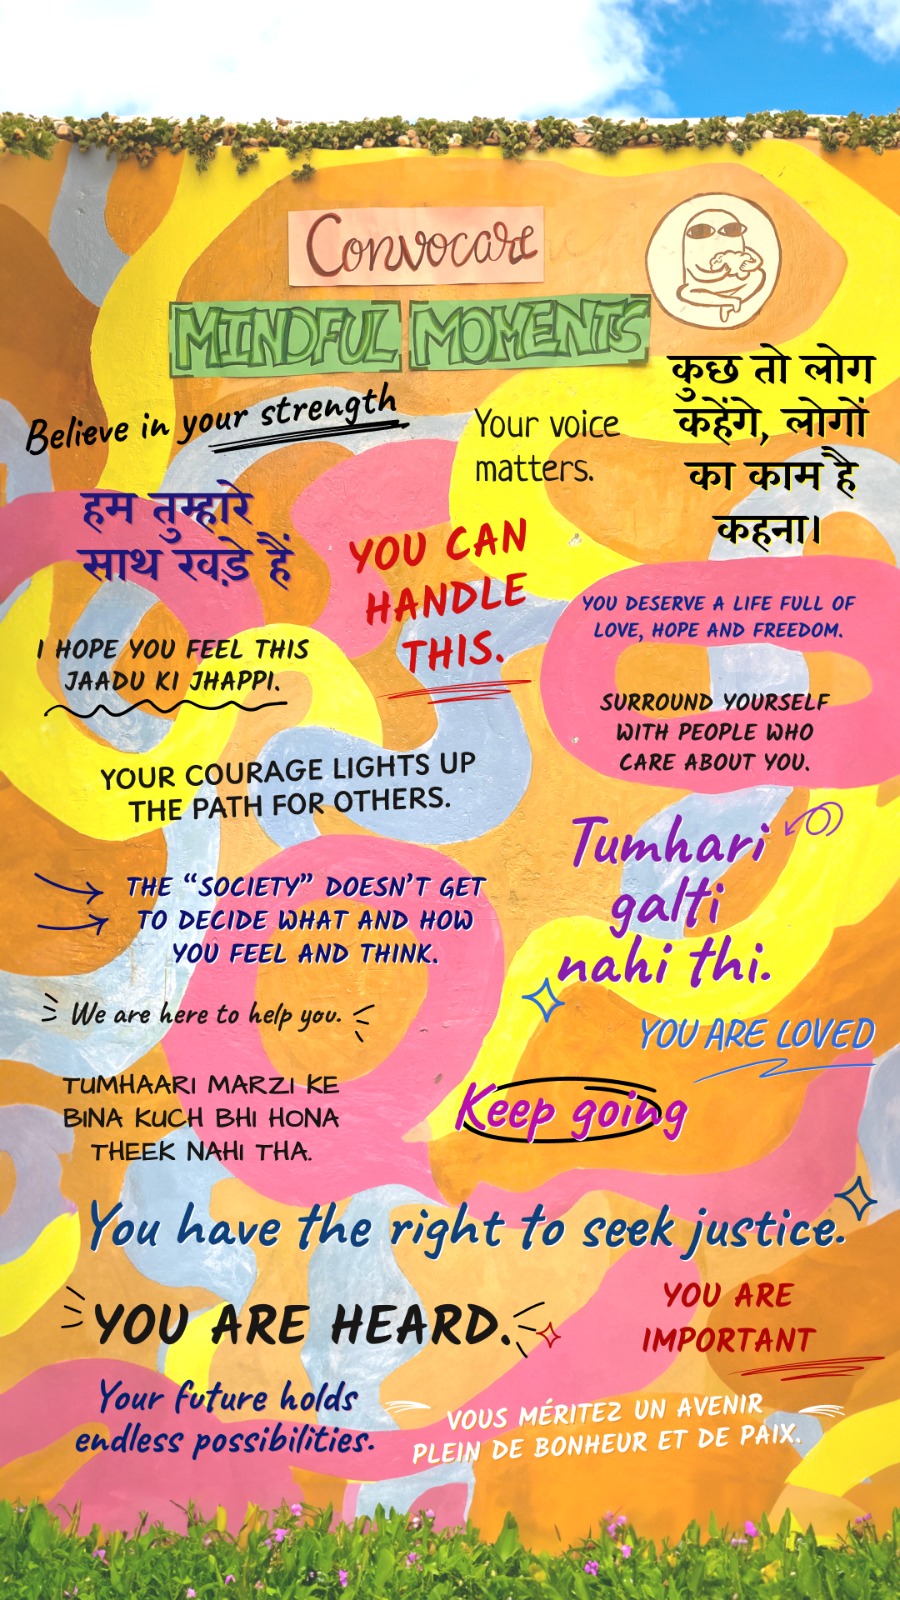 Convocare
MINDFUL MOMENTS
Believe in your strength
Your voice
matters.
कुछ तो लोग
कहेंगे, लोगों
का काम है
कहना।
हम तुम्हारे
साथ खड़े हैं
YOU CAN
HANDLE
THIS.
YOU DESERVE A LIFE FULL OF
LOVE, HOPE AND FREEDOM.
I HOPE YOU FEEL THIS
JAADU KI JHAPPI.
SURROUND YOURSELF
WITH PEOPLE WHO
CARE ABOUT YOU.
YOUR COURAGE LIGHTS UP
THE PATH FOR OTHERS.
Tumhari
galti
nahi thi.
THE “SOCIETY” DOESN'T GET
TO DECIDE WHAT AND HOW
YOU FEEL AND THINK.
We are here to help you.
YOU ARE LOVED
TUMHAARI MARZI KE
BINA KUCH BHI HONA
THEEK NAHI THA.
Keep going
You have the right to seek justice.
YOU ARE HEARD.
YOU ARE
IMPORTANT
Your future holds
endless possibilities.
VOUS MÉRITEZ UN AVENIR
PLEIN DE BONHEUR ET DE PAIX.